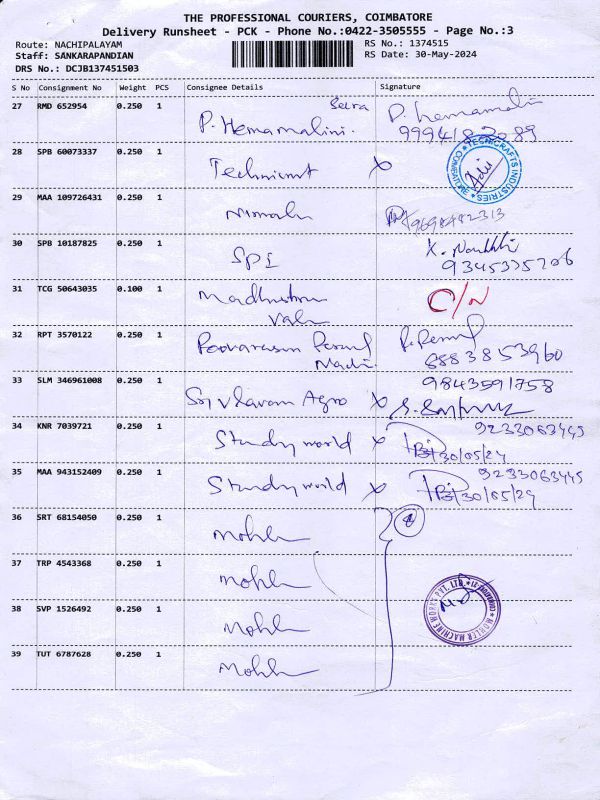 THE PROFESSIONAL COURIERS, COIMBATORE
Delivery Runsheet - PCK - Phone No.:0422-3505555 - Page No.:3
Route: NACHIPALAYAM
Staff: SANKARAPANDIAN
DRS No.: DCJB137451503
RS No.: 1374515
RS Date: 30-May-2024
S No Consignment No Weight PCS Consignee Details Signature
27 RMD 652954 0.250 1 P. Hemamalini. P. Hemamalini
28 SPB 60073337 0.250 1
TECHNICRAFTS INDUSTRIES COIMBATORE
29 MAA 109726431 0.250 1 9698482313
30 SPB 10187825 0.250 1 SPI
9345375206
31 TCG 50643035 0.100 1 C/N
32 RPT 3570122 0.250 1
8883853960
33 SLM 346961008 0.250 1 Agro X 9843591758
34 KNR 7039721 0.250 1 Study world X 9233063445
30/05/24
35 MAA 943152409 0.250 1 Study world X 9233063445
30/05/24
36 SRT 68154050 0.250 1 Mohler
37 TRP 4543368 0.250 1 Mohler
38 SVP 1526492 0.250 1 Mohler
MOHLER MACHINE WORKS PVT. LTD.
39 TUT 6787628 0.250 1 Mohler